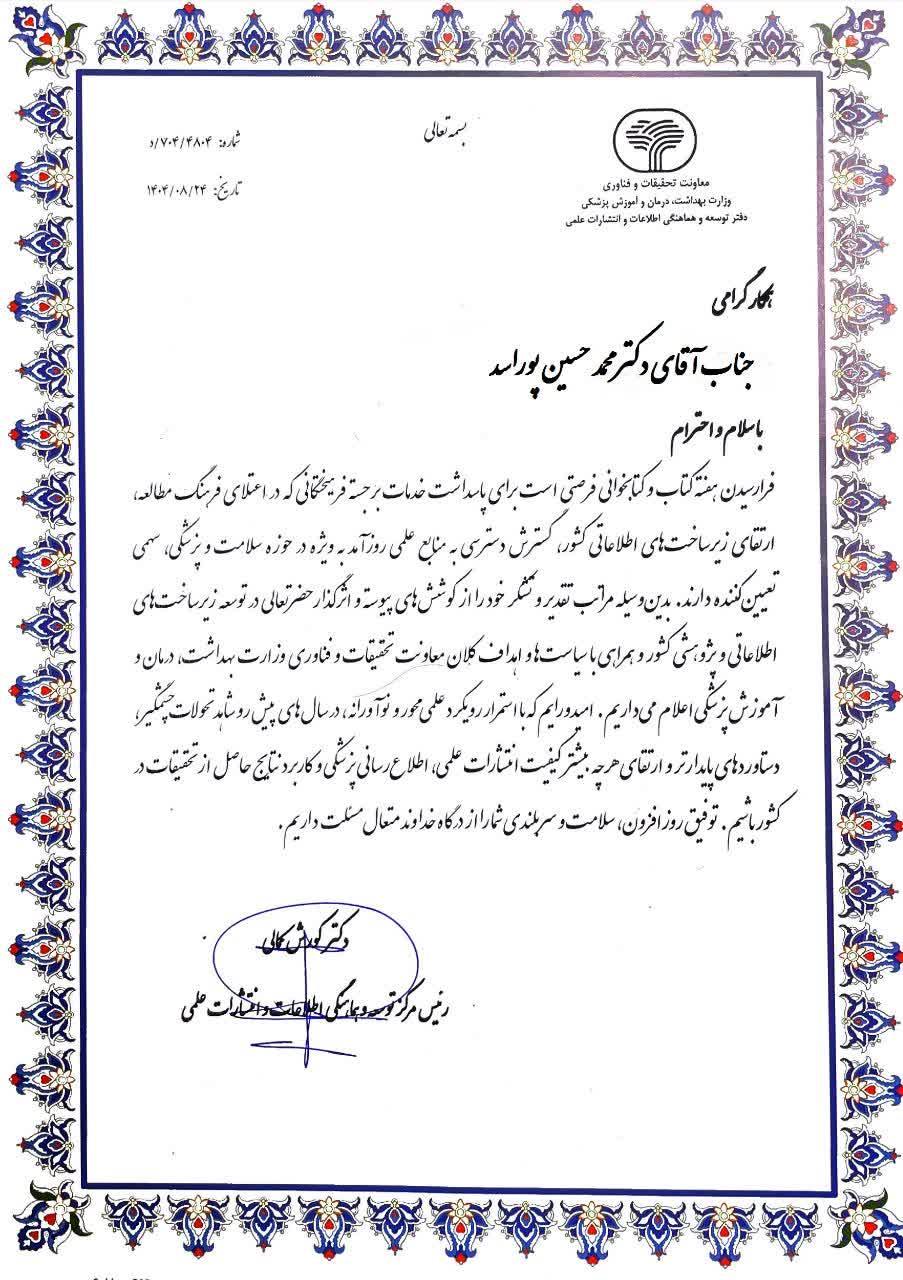 بسمه تعالی
شماره: ۷۰۴/۴۸۰۴/د
تاریخ: ۱۴۰۴/۰۸/۲۴
معاونت تحقیقات و فناوری
وزارت بهداشت، درمان و آموزش پزشکی
دفتر توسعه و هماهنگی اطلاعات و انتشارات علمی
همکار گرامی
جناب آقای دکتر محمد حسین پوراسد
با سلام و احترام
فرارسیدن هفته کتاب و کتابخوانی فرصتی است برای پاسداشت خدمات برجسته فرهیختگانی که در اعتلای فرهنگ مطالعه،
ارتقای زیرساخت‌های اطلاعاتی کشور، گسترش دسترسی به منابع علمی روزآمد به ویژه در حوزه سلامت و پزشکی، سهمی
تعیین‌کننده دارند. بدین‌وسیله مراتب تقدیر و تشکر خود را از کوشش‌های پیوسته و اثرگذار حضرتعالی در توسعه زیرساخت‌های
اطلاعاتی و پژوهشی کشور و همراهی با سیاست‌ها و اهداف کلان معاونت تحقیقات و فناوری وزارت بهداشت، درمان و
آموزش پزشکی اعلام می‌داریم. امیدواریم که با استمرار رویکرد علمی‌محور و نوآورانه، در سال‌های پیش رو شاهد تحولات چشمگیر،
دستاوردهای پایدارتر و ارتقای هرچه بیشتر کیفیت انتشارات علمی، اطلاع رسانی پزشکی و کاربرد نتایج حاصل از تحقیقات در
کشور باشیم. توفیق روزافزون، سلامت و سربلندی شما را از درگاه خداوند متعال مسئلت داریم.
دکتر کورش کمالی
رئیس مرکز توسعه و هماهنگی اطلاعات و انتشارات علمی